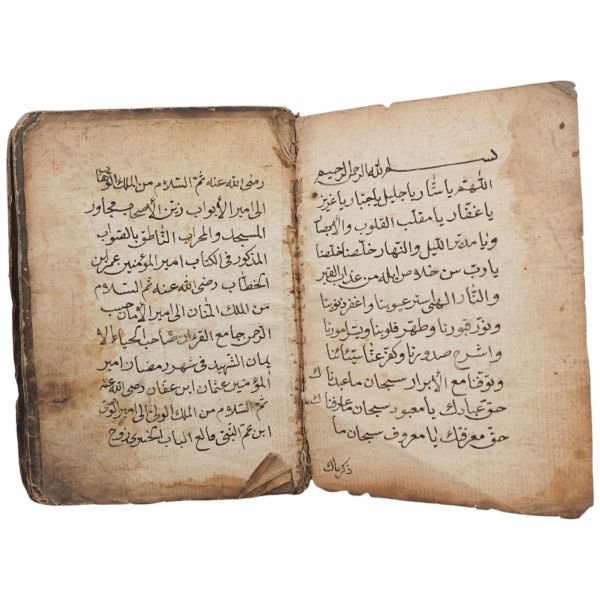 بسم الله الرحمن الرحيم
اللهم يا ستار يا جليل يا جبار يا عزيز
يا غفار يا مقلب القلوب والأبصار
ويا مدبر الليل والنهار خلصنا خلصنا
يا رب من عذاب القبر
والنار الهي استر عيوبنا واغفر ذنوبنا
ونور قبورنا وطهر قلوبنا ويسر أمورنا
واشرح صدورنا وكفر عنا سيئاتنا
وتوفنا مع الأبرار سبحان ما عبدناك
حق عبادتك يا معبود سبحان ما عرفناك
حق معرفتك يا معروف سبحان ما
ذكرناك
رضى الله عنه ثم السلام من الملك الوهاب
الى امير الأبواب زين الأصحاب مجاور
المسجد والمحراب الناطق بالصواب
المذكور في الكتاب امير المؤمنين عمر ابن
الخطاب رضى الله عنه ثم السلام
من الملك المنان الى امير الأمان حبيب
الرحمن جامع القرءان صاحب الحياء والا
يمان الشهيد في شهر رمضان امير
المؤمنين عثمان ابن عفان رضى الله عنه
ثم السلام من الملك الولى الى امير الوفى
ابن عم النبى وقالع الباب الخيبرى زوج